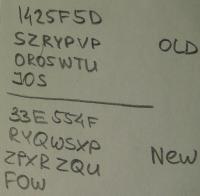 1425F5D
SZRYPVP OLD
OROSWTU
JOS
33E554F
RYQWSXP
ZPXRZQU New
FOW